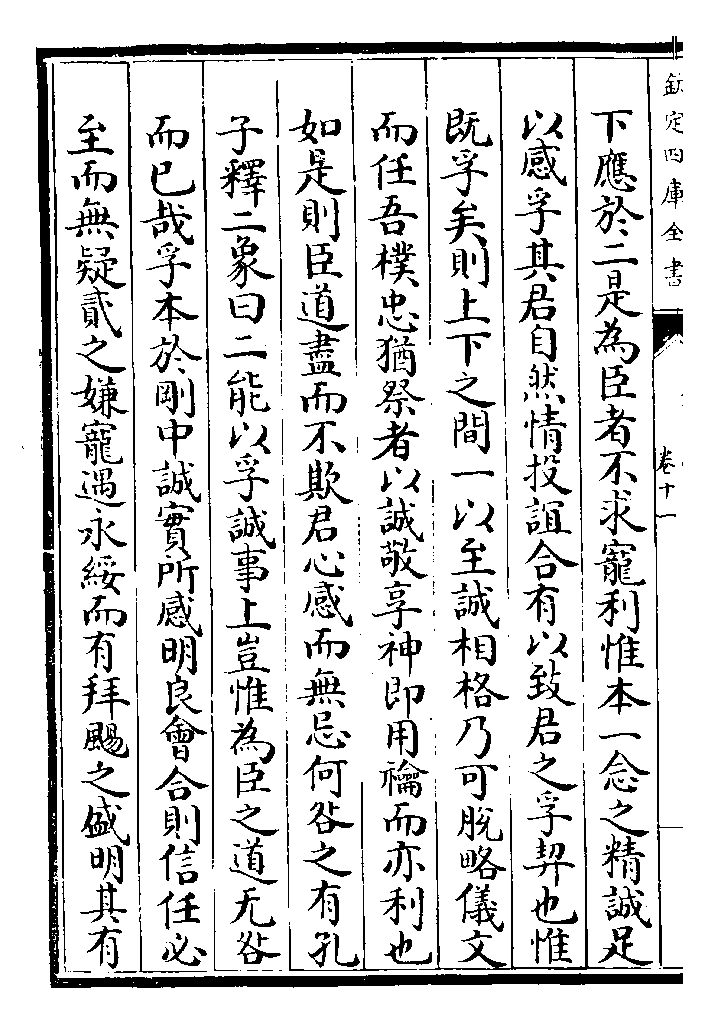 欽定四庫全書
卷十一
下應於二是為臣者不求寵利惟本一念之精誠足
以感孚其君自然情投誼合有以致君之孚契也惟
既孚矣則上下之間一以至誠相格乃可脫略儀文
而任吾樸忠猶祭者以誠敬享神即用禴而亦利也
如是則臣道盡而不欺君心感而無忌何咎之有孔
子釋二象曰二能以孚誠事上豈惟為臣之道无咎
而已哉孚本於剛中誠實所感明良會合則信任必
至而無疑貳之嫌寵遇永綏而有拜颺之盛明其有